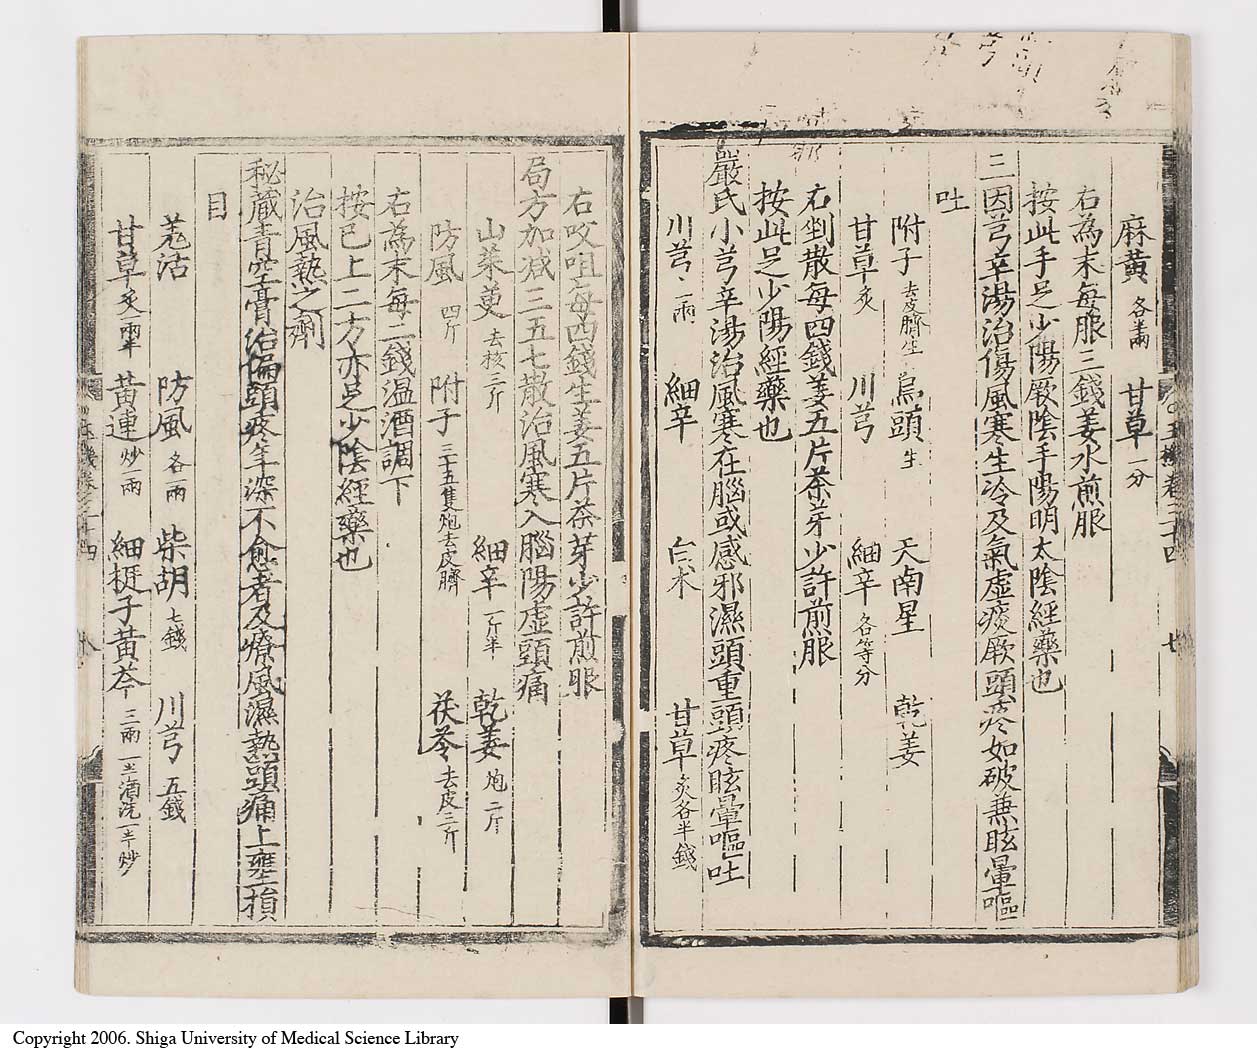 麻黄 各半兩 甘草 一分
右為末每服三錢姜水煎服
按此手足少陽厥陰手陽明太陰經藥也
三因芎辛湯治傷風寒生冷及氣虛痰厥頭疼如破兼眩暈嘔
吐
附子 去皮臍生 烏頭 生 天南星 乾姜
甘草 炙 川芎 細辛 各等分
右剉散每四錢姜五片茶芽少許煎服
按此足少陽經藥也
嚴氏小芎辛湯治風寒在腦或感邪濕頭重頭疼眩暈嘔吐
川芎 一兩 細辛 白朮 甘草 炙各半錢
右㕮咀每四錢生姜五片茶芽少許煎服
局方加減三五七散治風寒入腦陽虛頭痛
山茱萸 去核三斤 細辛 一斤半 乾姜 炮二斤
防風 四斤 附子 三十五隻炮去皮臍 茯苓 去皮三斤
右為末每二錢温酒調下
按已上二方亦足少陰經藥也
治風熱之劑
秘蔵青空膏治偏頭疼年深不愈者及療風濕熱頭痛上壅損
目
羗活 防風 各一兩 柴胡 七錢 川芎 五錢
甘草 炙 黄連 炒一兩 細挺子黄芩 三兩一半酒洗一半炒
Copyright 2006. Shiga University of Medical Science Library